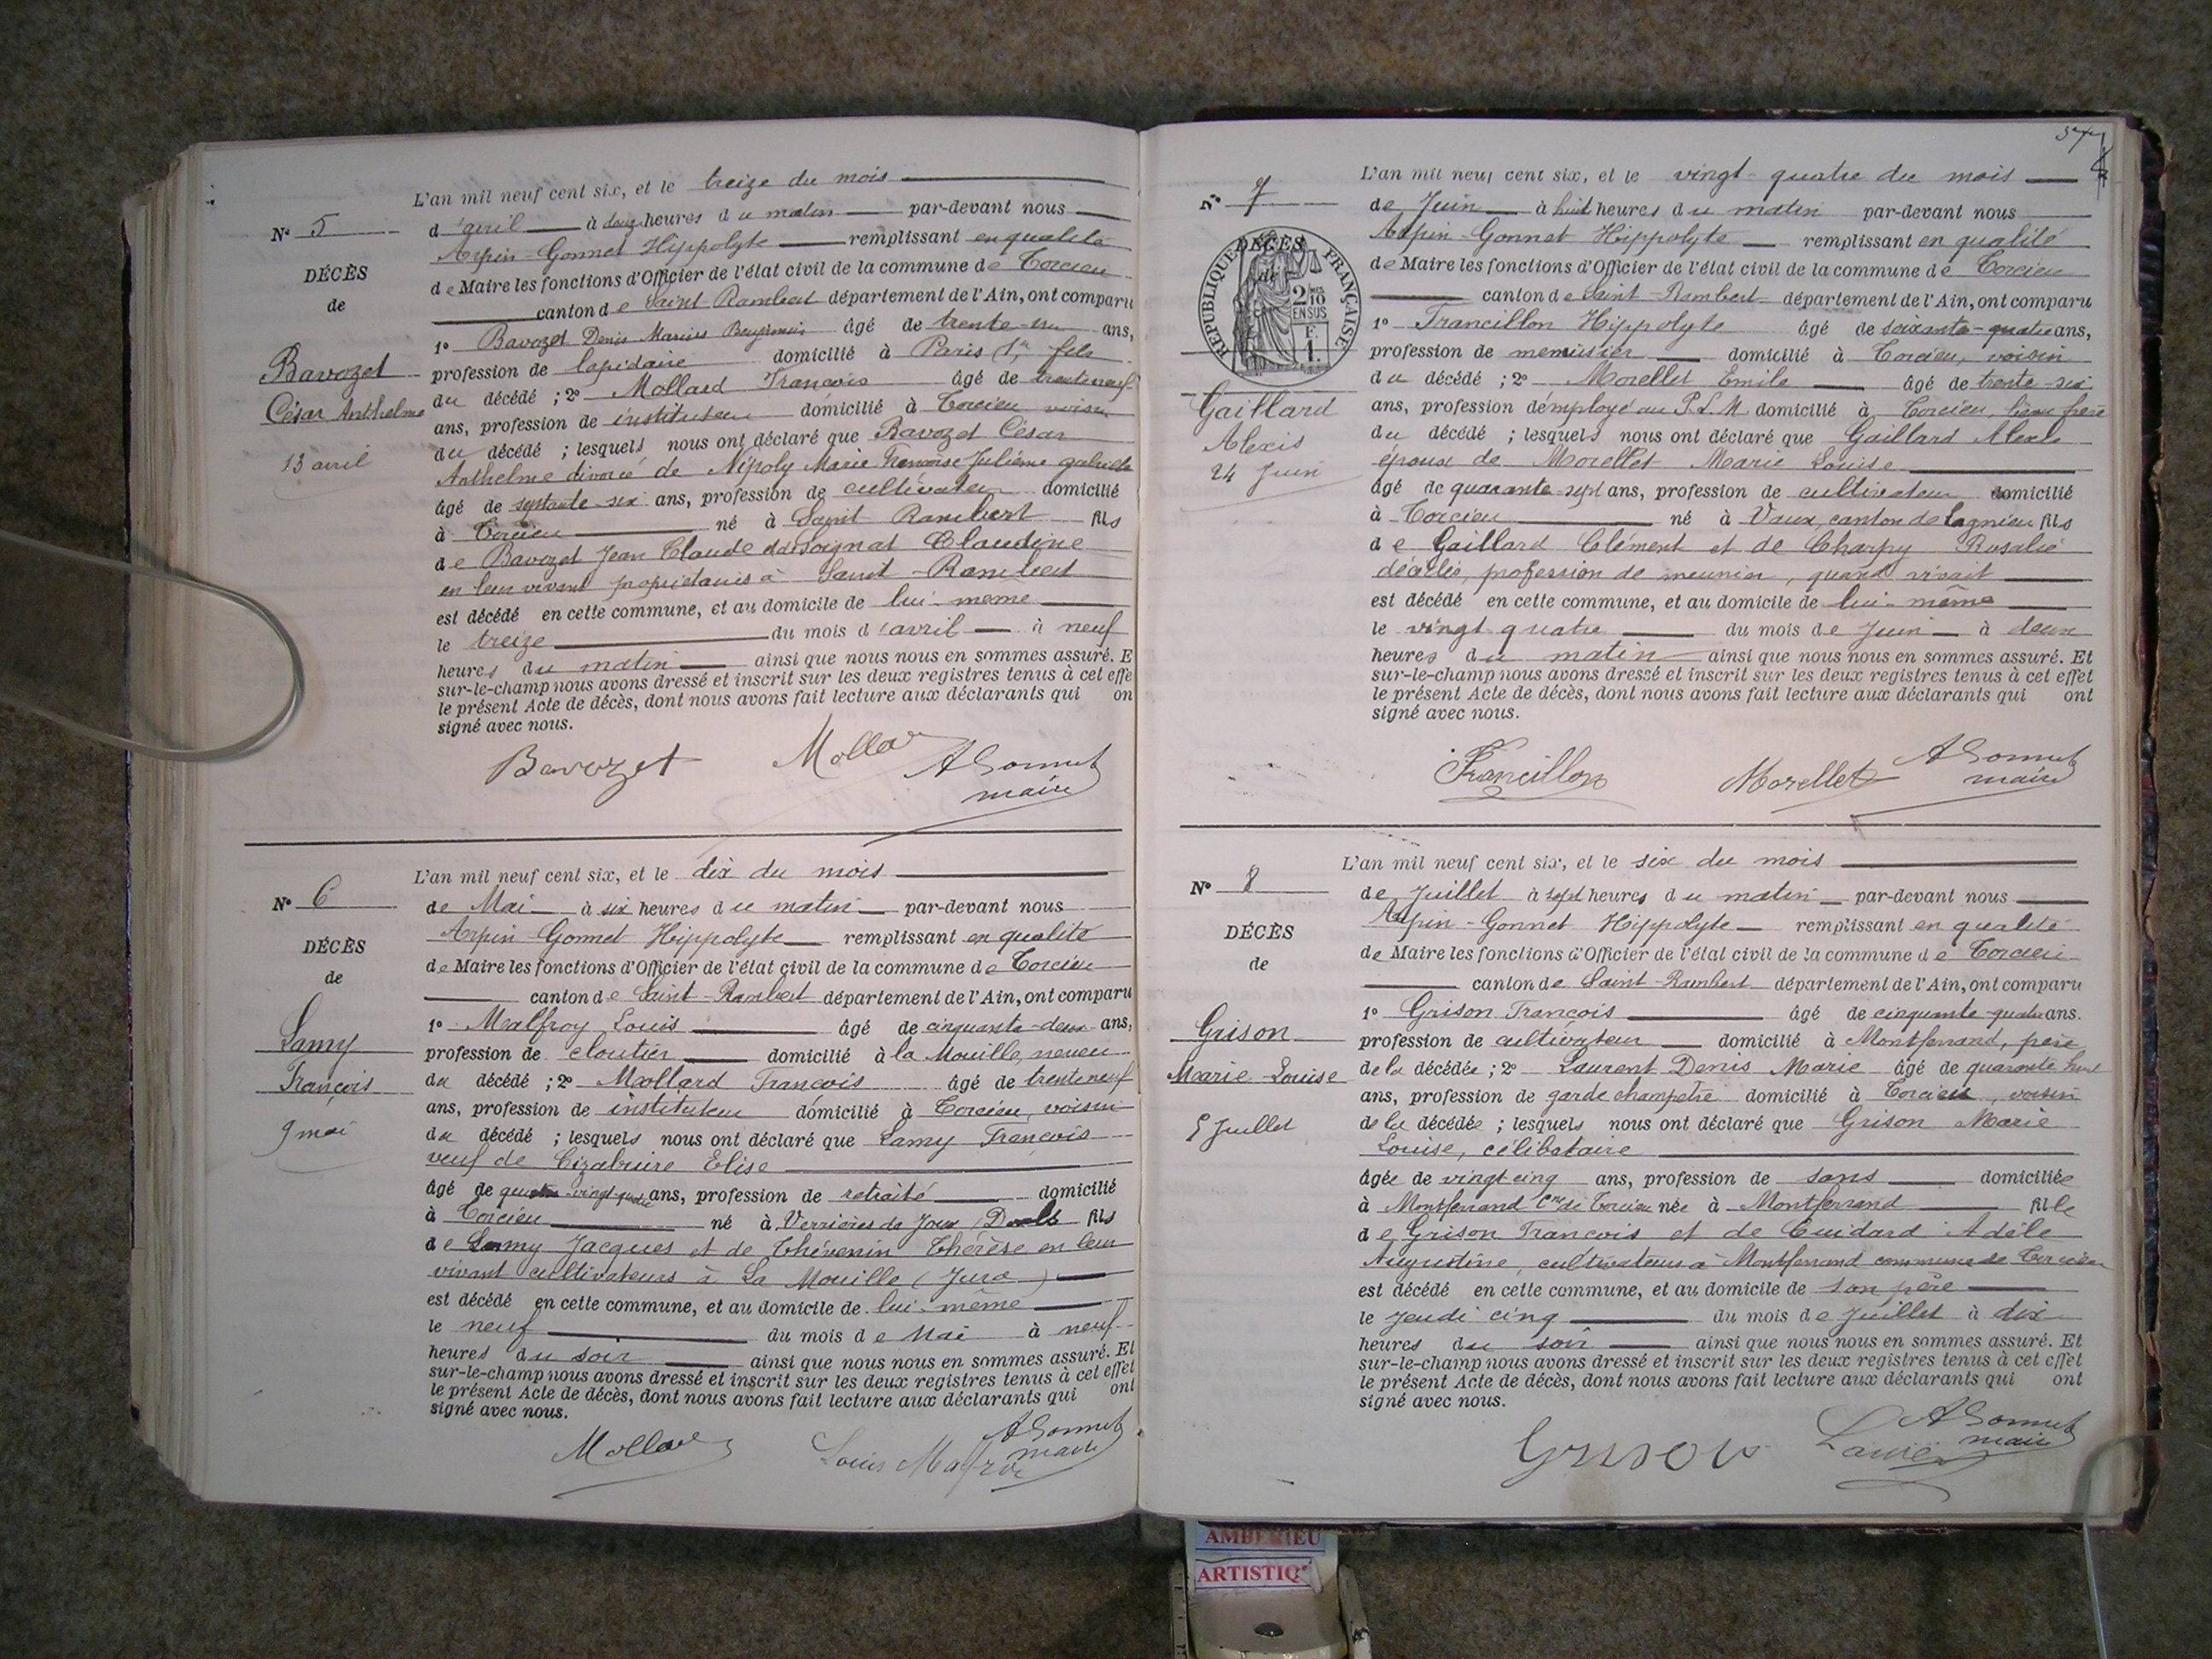 L'an mil neuf cent six, et le treize du mois
N° 5
d'avril à heures du matin par-devant nous
Arpin-Gonnet Hippolyte remplissant en qualité
DÉCÈS
de Maire les fonctions d'Officier de l'état civil de la commune de Torcieu
de
canton de Saint-Rambert département de l'Ain, ont comparu
1° Bavozet Denis Marius Benjamin âgé de trente-un ans,
Bavozet
profession de lapidaire domicilié à Paris fils
César Anthelme
du décédé ; 2° Mollard François âgé de trente neuf
ans, profession de instituteur domicilié à Torcieu voisin
13 avril
du décédé ; lesquels nous ont déclaré que Bavozet César
Anthelme divorcé de Népoly Marie Françoise Julienne
âgé de septante-six ans, profession de cultivateur domicilié
à Torcieu né à Saint Rambert fils
de Bavozet Jean Claude et de Claudine
en leur vivant propriétaires à Saint-Rambert
est décédé en cette commune, et au domicile de lui-même
le treize du mois d'avril à neuf
heures du matin ainsi que nous nous en sommes assuré. E
sur-le-champ nous avons dressé et inscrit sur les deux registres tenus à cet effe
le présent Acte de décès, dont nous avons fait lecture aux déclarants qui on
signé avec nous.
Bavozet Mollard AGonnet
maire
L'an mil neuf cent six, et le dix du mois
N° 6
de Mai à six heures du matin par-devant nous
Arpin Gonnet Hippolyte remplissant en qualité
DÉCÈS
de Maire les fonctions d'Officier de l'état civil de la commune de Torcieu
de
canton de Saint-Rambert département de l'Ain, ont comparu
1° Malfroy Louis âgé de cinquante-deux ans,
Lamy
profession de cloutier domicilié à la Mouille, neveu
François
du décédé ; 2° Mollard François âgé de trente neuf
ans, profession de instituteur domicilié à Torcieu, voisin
9 mai
du décédé ; lesquels nous ont déclaré que Lamy François
veuf de Cizabuire Elise
âgé de quatre-vingt-quatre ans, profession de retraité domicilié
à Torcieu né à Verrières de Joux (Doubs fils
de Lamy Jacques et de Thévenin Thérèse en leur
vivant cultivateurs à La Mouille (Jura)
est décédé en cette commune, et au domicile de lui-même
le neuf du mois de Mai à neuf
heures du soir ainsi que nous nous en sommes assuré. Et
sur-le-champ nous avons dressé et inscrit sur les deux registres tenus à cet effet
le présent Acte de décès, dont nous avons fait lecture aux déclarants qui ont
signé avec nous.
Mollard Louis Malfroy AGonnet
maire
57
L'an mil neuf cent six, et le vingt-quatre du mois
N° 7
de Juin à huit heures du matin par-devant nous
Arpin-Gonnet Hippolyte remplissant en qualité
DÉCÈS
de
RÉPUBLIQUE FRANÇAISE
2 10
EN SUS
de Maire les fonctions d'Officier de l'état civil de la commune de Torcieu
canton de Saint-Rambert département de l'Ain, ont comparu
1° Francillon Hippolyte âgé de soixante-quatre ans,
profession de menuisier domicilié à Torcieu, voisin
du décédé ; 2° Morellet Emile âgé de trente-six
Gaillard
ans, profession d'employé au P.L.M. domicilié à Torcieu, beau frère
Alexis
du décédé ; lesquels nous ont déclaré que Gaillard Alexis
24 Juin
époux de Morellet Marie Louise
âgé de quarante-sept ans, profession de cultivateur domicilié
à Torcieu né à Vaux, canton de Lagnieu fils
de Gaillard Clément et de Charpy Rosalie
décédés, profession de meunier, quand vivait
est décédé en cette commune, et au domicile de lui-même
le vingt quatre du mois de Juin à deux
heures du matin ainsi que nous nous en sommes assuré. Et
sur-le-champ nous avons dressé et inscrit sur les deux registres tenus à cet effet
le présent Acte de décès, dont nous avons fait lecture aux déclarants qui ont
signé avec nous.
Francillon Morellet AGonnet
maire
L'an mil neuf cent six, et le six du mois
N° 8
de Juillet à sept heures du matin par-devant nous
Arpin-Gonnet Hippolyte remplissant en qualité
DÉCÈS
de Maire les fonctions d'Officier de l'état civil de la commune de Torcieu
de
canton de Saint-Rambert département de l'Ain, ont comparu
1° Grison François âgé de cinquante-quatre ans.
Grison
profession de cultivateur domicilié à Montferrand, père
Marie-Louise
de la décédée ; 2° Laurent Denis Marie âgé de quarante huit
ans, profession de garde champêtre domicilié à Torcieu, voisin
5 Juillet
de la décédée ; lesquels nous ont déclaré que Grison Marie
Louise, célibataire
âgée de vingt cinq ans, profession de sans domiciliée
à Montferrand Cne de Torcieu née à Montferrand fille
de Grison François et de Cuidard Adèle
Augustine, cultivateurs à Montferrand commune de Torcieu
est décédé en cette commune, et au domicile de son père
le Jeudi cinq du mois de Juillet à dix
heures du soir ainsi que nous nous en sommes assuré. Et
sur-le-champ nous avons dressé et inscrit sur les deux registres tenus à cet effet
le présent Acte de décès, dont nous avons fait lecture aux déclarants qui ont
signé avec nous.
Grison AGonnet
maire
AMBERIEU
ARTISTIQ